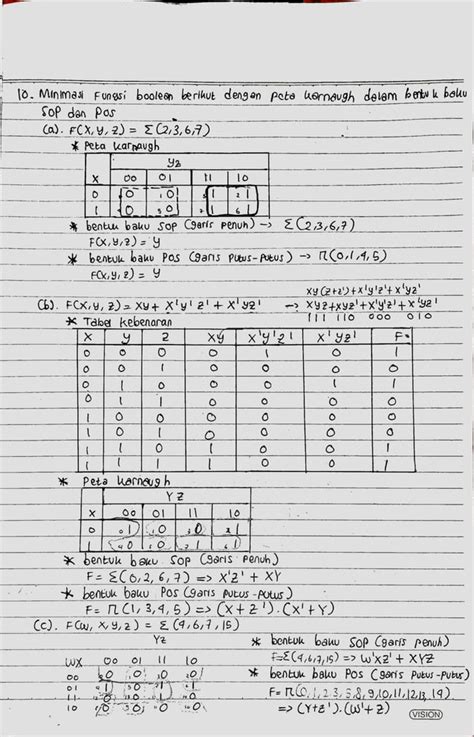 10. Minimasi Fungsi boolean berikut dengan peta karnaugh dalam bentuk baku
SOP dan POS
(a). F(X, Y, Z) = Σ(2,3,6,7)
* Peta karnaugh
YZ
X 00 01 11 10
0 0 0 1 1
1 0 0 1 1
* bentuk baku SOP (garis penuh) -> Σ(2,3,6,7)
F(X,Y,Z) = Y
* bentuk baku POS (garis putus-putus) -> Π(0,1,4,5)
F(X,Y,Z) = Y
XY(Z+Z')+X'Y'Z'+X'YZ'
(b). F(X,Y,Z) = XY + X'Y'Z' + X'YZ' -> XYZ+XYZ'+X'Y'Z'+X'YZ'
111 110 000 010
* Tabel kebenaran
X Y Z XY X'Y'Z' X'YZ' F=
0 0 0 0 1 0 1
0 0 1 0 0 0 0
0 1 0 0 0 1 1
0 1 1 0 0 0 0
1 0 0 0 0 0 0
1 0 1 0 0 0 0
1 1 0 1 0 0 1
1 1 1 1 0 0 1
* Peta karnaugh
YZ
X 00 01 11 10
0 1 0 0 1
1 0 0 1 1
* bentuk baku SOP (garis penuh)
F = Σ(0,2,6,7) => X'Z' + XY
* bentuk baku POS (garis putus-putus)
F = Π(1,3,4,5) => (X+Z').(X'+Y)
(c). F(W,X,Y,Z) = Σ(4,6,7,15)
YZ
WX 00 01 11 10
00 0 0 0 0
01 1 0 1 1
11 0 0 1 0
10 0 0 0 0
* bentuk baku SOP (garis penuh)
F=Σ(4,6,7,15) => W'XZ' + XYZ
* bentuk baku POS (garis putus-putus)
F = Π(0,1,2,3,5,8,9,10,11,12,13,14)
=> (Y+Z').(W'+Z)
VISION